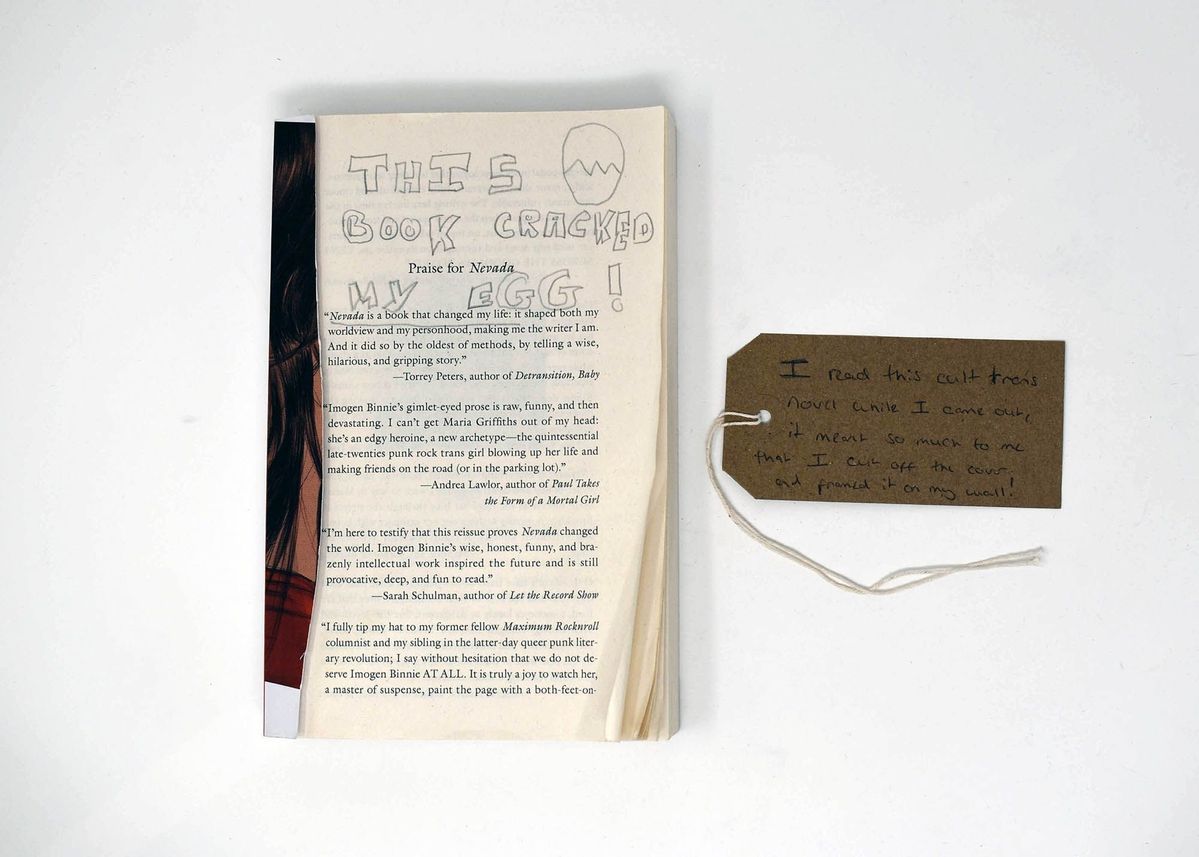 THIS
BOOK CRACKED
Praise for Nevada
MY EGG!
“Nevada is a book that changed my life: it shaped both my
worldview and my personhood, making me the writer I am.
And it did so by the oldest of methods, by telling a wise,
hilarious, and gripping story.”
—Torrey Peters, author of Detransition, Baby
“Imogen Binnie’s gimlet-eyed prose is raw, funny, and then
devastating. I can’t get Maria Griffiths out of my head:
she’s an edgy heroine, a new archetype—the quintessential
late-twenties punk rock trans girl blowing up her life and
making friends on the road (or in the parking lot).”
—Andrea Lawlor, author of Paul Takes
the Form of a Mortal Girl
“I’m here to testify that this reissue proves Nevada changed
the world. Imogen Binnie’s wise, honest, funny, and bra-
zenly intellectual work inspired the future and is still
provocative, deep, and fun to read.”
—Sarah Schulman, author of Let the Record Show
“I fully tip my hat to my former fellow Maximum Rocknroll
columnist and my sibling in the latter-day queer punk liter-
ary revolution; I say without hesitation that we do not de-
serve Imogen Binnie AT ALL. It is truly a joy to watch her,
a master of suspense, paint the page with a both-feet-on-
I read this cult trans
novel while I came out,
it meant so much to me
that I cut off the cover
and framed it on my wall!